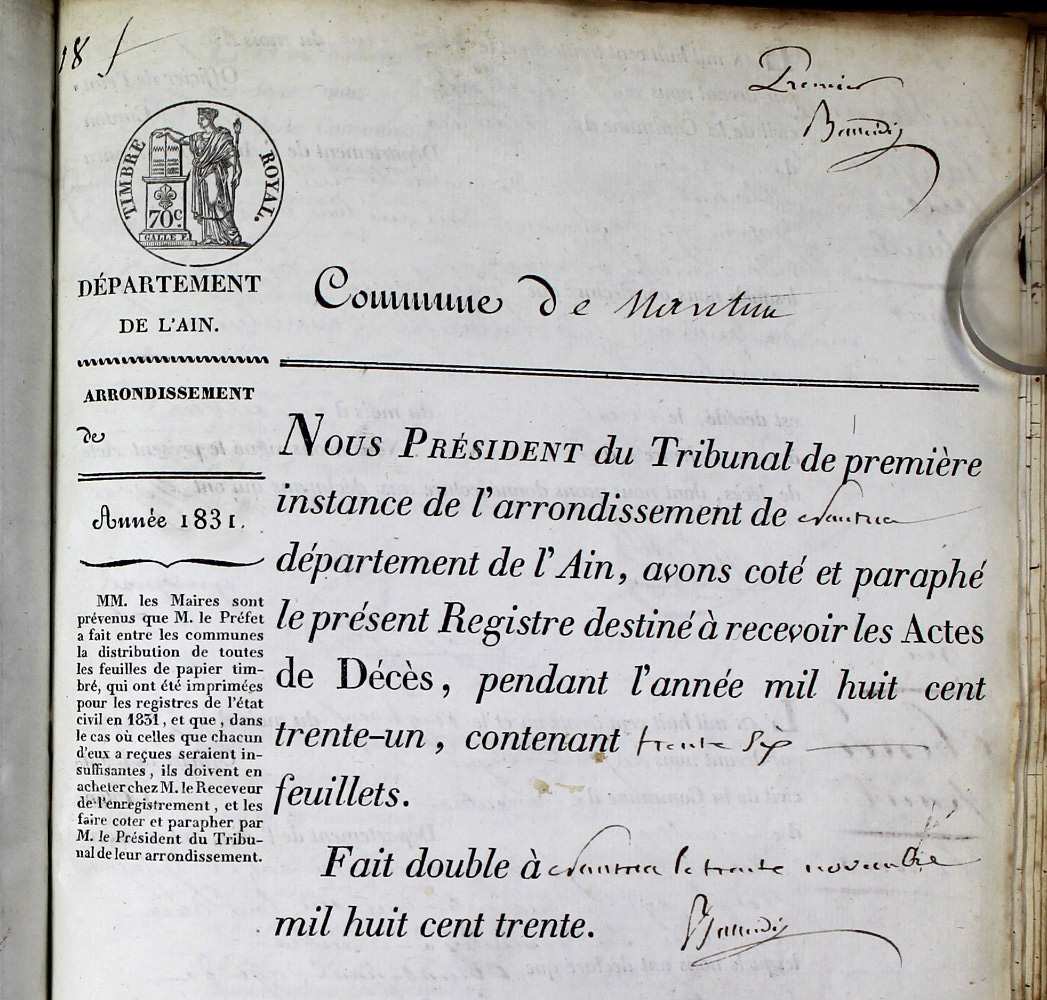 18
Premier
TIMBRE ROYAL.
70c.
GALLE F.
DÉPARTEMENT
DE L'AIN.
Commune de Nantua
ARRONDISSEMENT
de
Année 1831.
MM. les Maires sont
prévenus que M. le Préfet
a fait entre les communes
la distribution de toutes
les feuilles de papier tim-
bré, qui ont été imprimées
pour les registres de l'état
civil en 1831, et que, dans
le cas où celles que chacun
d'eux a reçues seraient in-
suffisantes, ils doivent en
acheter chez M. le Receveur
de l'enregistrement, et les
faire coter et parapher par
M. le Président du Tribu-
nal de leur arrondissement.
NOUS PRÉSIDENT du Tribunal de première
instance de l'arrondissement de Nantua
département de l'Ain, avons coté et paraphé
le présent Registre destiné à recevoir les Actes
de Décès, pendant l'année mil huit cent
trente-un, contenant trente six
feuillets.
Fait double à Nantua le trente novembre
mil huit cent trente.